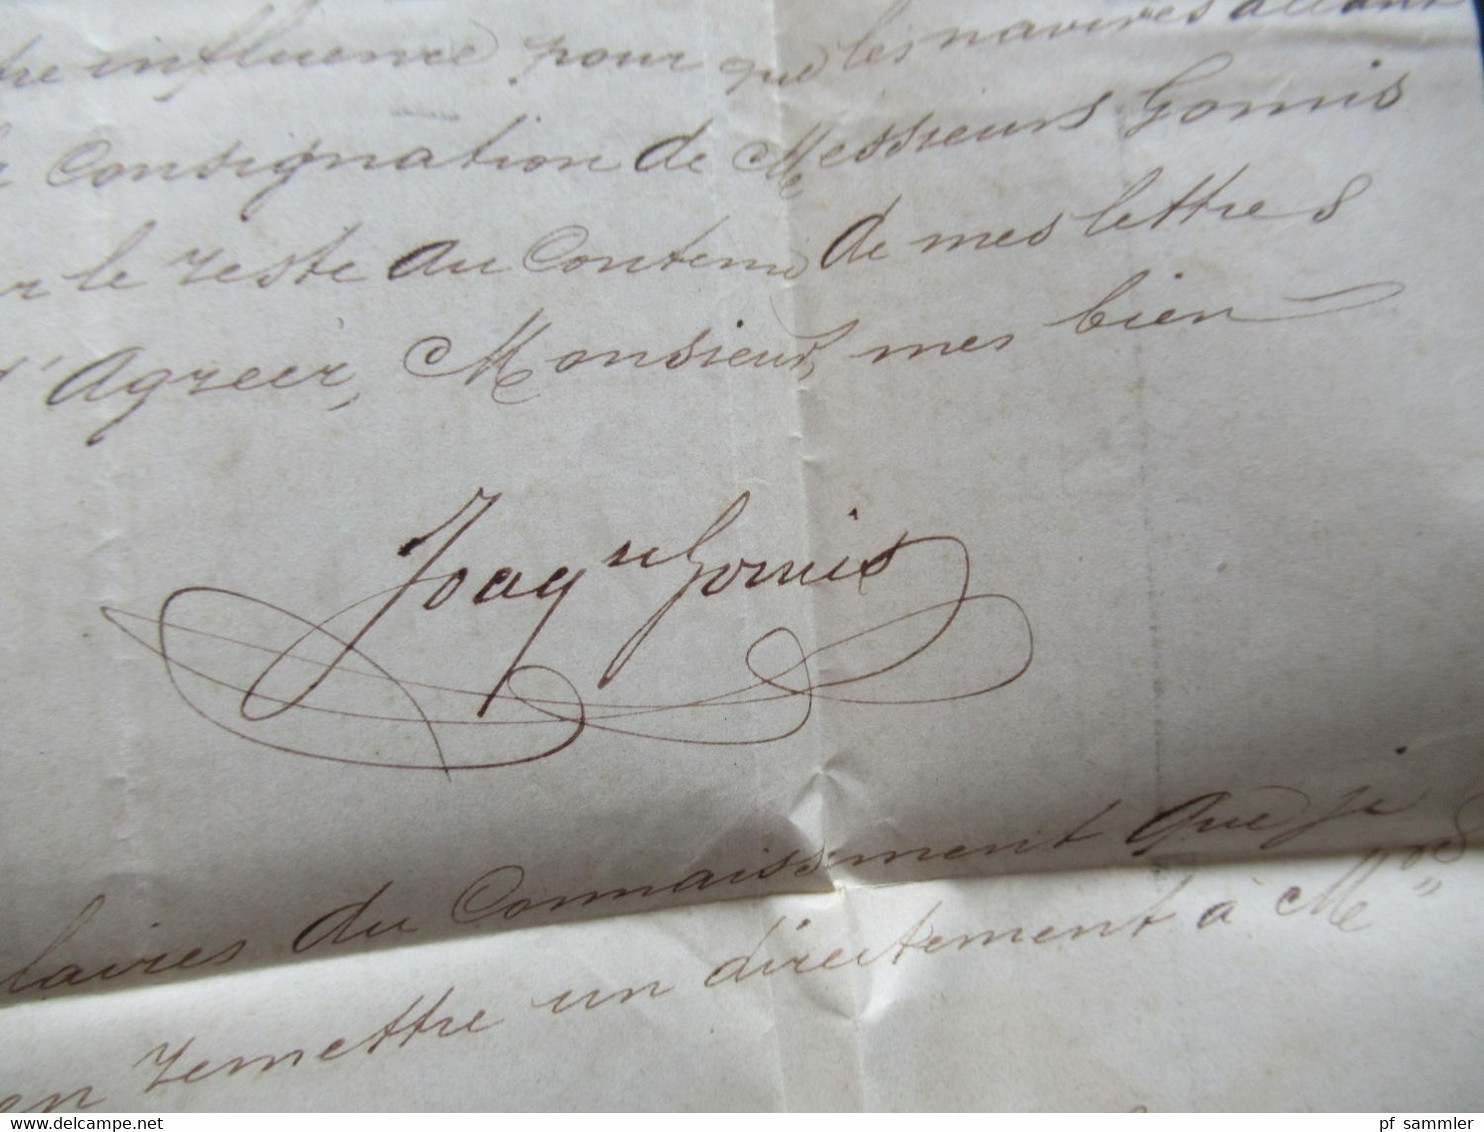 influence pour que les navires allant
Consignation de Messieurs Gomis
le reste au Contenu de mes lettres
d'Agreer, Monsieur, mes bien
Joaqn Gomis
laires du Connaissement que je
en remettre un directement à Mrs
pf_sammler